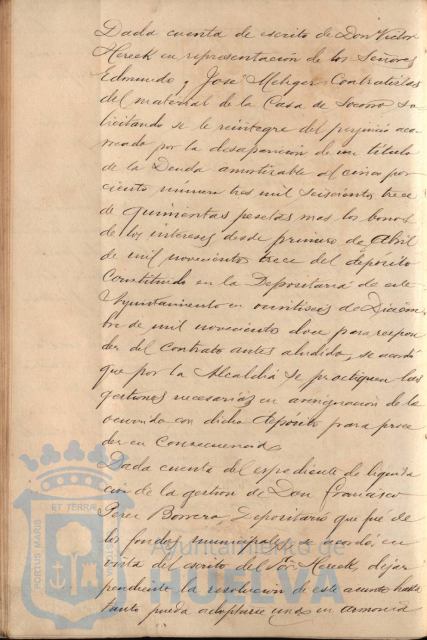 Dada cuenta de escrito de Don Victor
Hereck en representación de los Señores
Edmundo y José Metzger Contratistas
del material de la Casa de Socorro so
licitando se le reintegre del perjuicio oca
sionado por la desaparición de un título
de la Deuda amortizable al cinco por
ciento numero tres mil seiscientos trece
de quinientas pesetas mas los bonos
de los intereses desde primero de Abril
de mil novecientos trece del depósito
Constituido en la Depositaria de este
Ayuntamiento en veintiseis de Diciem
bre de mil novecientos doce para respon
der del Contrato antes aludido, se acordó
que por la Alcaldía se practiquen las
gestiones necesarias en averiguación de lo
ocurrido con dicho depósito para proce
der en Consecuencia
Dada cuenta del expediente de liquida
ción de la gestion de Don Francisco
Perez Borrero Depositario que fué de
los fondos municipales, se acordó, en
vista del escrito del Sr. Hereck, dejar
pendiente la resolución de este asunto hasta
tanto pueda adoptarse una en armonía
PORTUS MARIS ET TERRAE CUSTODIA
Ayuntamiento de
HUELVA